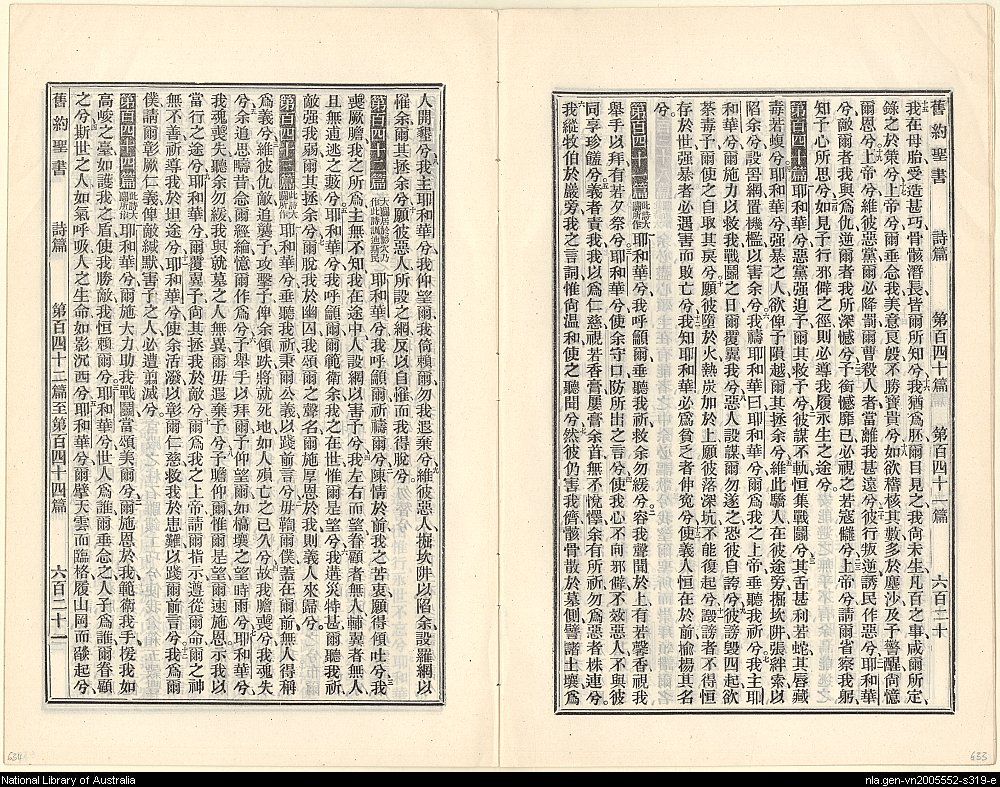 舊約聖書 詩篇 第百四十篇 第百四十一篇 六百二十
我在母胎受造甚巧骨骸潛長皆爾所知兮我猶爲胚爾目見之我尙未生凡百之事咸爾所定
錄之於策兮上帝兮爾垂念我美意良殷不勝寶貴兮如欲稽核其數多於塵沙及予警醒尙憶
爾恩兮上帝兮維彼惡黨爾必降罰爾曹殺人者當離我甚遠兮彼行叛逆誘民作惡兮耶和華
兮敵爾者我與爲仇逆爾者我所深憾兮予銜憾靡已必視之若寇讎兮上帝兮請爾省察我躬
知予心所思兮如見予行邪僻之徑則必導我履永生之途兮
第百四十篇 此詩大闢所作 耶和華兮惡黨强迫予爾其救予兮彼謀不軌恒集戰鬬兮其舌甚利若蛇其唇藏
毒若螾兮耶和華兮强暴之人欲俾予隕越爾其拯余兮維此驕人在彼途旁掘坎阱張絆索以
陷余兮設罟網置機檻以害余兮我禱耶和華曰耶和華兮爾爲我之上帝垂聽我祈兮我主耶
和華兮爾施力以救我戰鬬之日爾覆翼我兮惡人設謀爾勿遂之恐彼自誇兮彼謗毀四起欲
荼毒予爾使之自取其戾兮願彼墮於火熱炭加於上願彼落深坑不能復起兮譭謗者不得恒
存於世强暴者必遇害而敗亡兮我知耶和華必爲貧乏者伸寃兮使義人恒在於前揄揚其名
兮
第百四十一篇 此詩大闢所作 耶和華兮我呼籲爾垂聽我我祈救余勿緩兮容我聲聞於上有若馨香視我
舉手以拜有若夕祭兮耶和華兮使余守口防所出之言兮使我心不向邪僻不效惡人不與彼
同享珍饈兮義者責我我以爲仁慈視若香膏屢膏余首無不悅懌余有所祈勿爲惡者株連兮
我縱牧伯於巖旁我之言詞惟尙温和使之聽聞兮然彼仍害我儕骸骨散於墓側譬諸土壤爲
人開墾兮我主耶和華兮我仰望爾我倚賴爾勿我遐棄兮維彼惡人掘坎阱以陷余設羅網以
罹余爾其拯余兮願彼惡人所設之網反以自罹而我得脫兮
第百四十二篇 大闢居於巖穴乃作此詩訓迪爲民 耶和華兮我呼籲爾祈禱爾兮陳情於前我之苦衷願得傾吐兮我
喪厥膽我之所爲主無不知我在途中人設網以害予兮我左右而望眷顧者無人輔翼者無人
且無遁逃之藪兮耶和華兮我呼籲爾範衛余我之在世惟爾是望兮我遘災特甚爾聽我祈
敵强我弱爾其拯余兮爾脫我於幽囚我頌爾之聲名爾施厚恩於我則義人來歸兮
第百四十三篇 此詩大闢所作 耶和華兮垂聽我祈秉爾公義以踐前言兮毋鞫爾僕蓋在爾前無人得稱
爲義兮維彼仇敵追襲予攻擊予俾余傾跌將就死地如人殞亡之已久兮故我膽喪兮我魂失
兮余追思疇昔念爾經綸憶爾作爲兮予舉手以拜爾予仰望爾如槁壤之望時雨兮耶和華兮
我魂喪失聽余勿緩我與就墓之人無異爾毋遐棄予兮予瞻仰爾惟爾是望爾速施恩示我以
當行之途兮耶和華兮爾覆翼予尙其拯予我於敵兮爾爲我之上帝請爾指示遵從爾命爾之神
無不善祈導我於坦途兮耶和華兮使余活潑以彰爾仁慈救我於患難以踐爾前言兮我爲爾
僕請爾彰厥仁義俾敵緘默害予之人必遭翦滅兮
第百四十四篇 此詩大闢所作 耶和華兮爾施大力助我戰鬬當頌美爾兮爾施恩於我範衛我手援我如
高峻之臺如護我之盾使我勝敵我恒賴爾兮耶和華兮世人爲誰爾垂念之人子爲誰爾眷顧
之兮斯世之人如氣呼吸人之生命如影沉西兮耶和華兮爾擘天雲而臨格履山岡而㷔起兮
舊約聖書 詩篇 第百四十二篇至第百四十四篇 六百二十一
634
633
National Library of Australia
nla.gen-vn2005552-s319-e